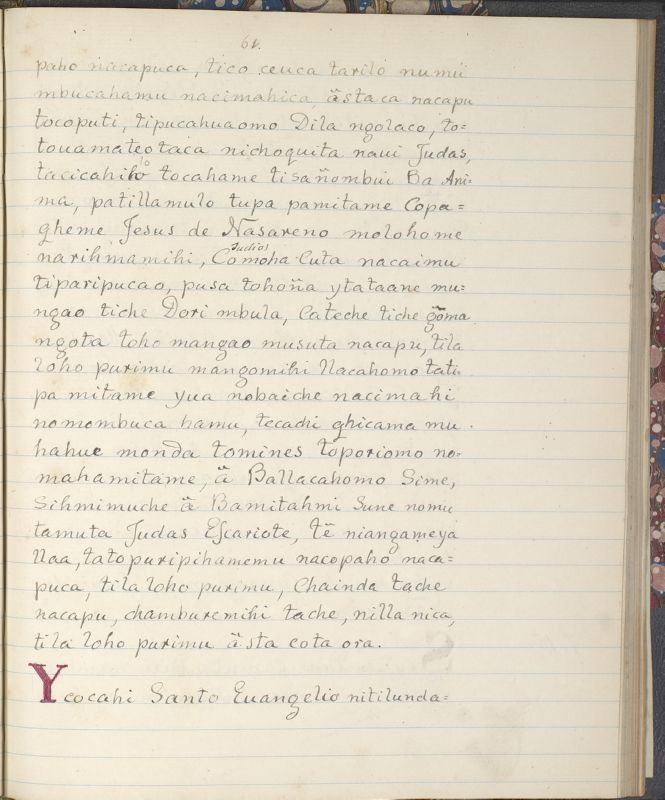 61.
paho nacapuca, tico ceuca tarilo numu
mbucahamu nacimahica, ästaca nacapu
tocoputi, tipucahuaomo Dila ngolaco, to=
touamateotaca nichoquita ñaui Judas,
tacicahilo tocahame tisañombui Ba Ani=
ma, patillamulo tupa pamitame Copa=
gheme Jesus de Nasareno molohome
narihmamihi, Comoha Judios Cuta nacaimu
tiparipucao, pusa tohoña ytataane mu=
ngao tiche Dori mbula, Cateche tiche goma
ngota toho mangao musuta nacapu, tila
loho purimu mangomihi llacahomo tati
pa mitame yua nobaiche nacimahi
nomombuca hamu, tecachi ghicama mu
hahue monda tomines toporiomo no=
mahamitame, ä Ballacahomo Sime,
Sihmimuche ä Bamitahmi Sune nomu
tamuta Judas Escariote, të niangameya
llaa, tato puripihamemu nacopaho naca=
puca, tila loho purimu, Chainda tache
nacapu, chamburemihi tache, nilla nica,
tila loho purimu ästa cota ora.
Ycocahi Santo Euangelio nitilunda=